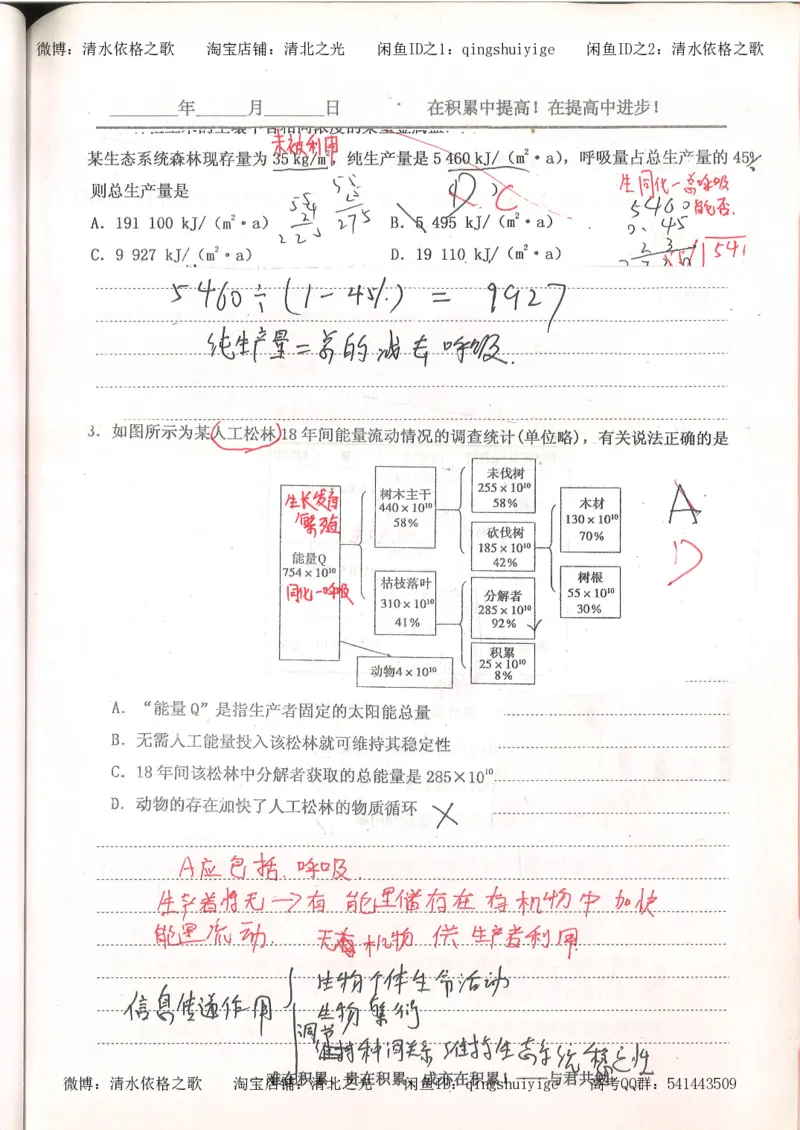 微博：清水依格之歌 淘宝店铺：清北之光 闲鱼ID之1：qingshuiyige 闲鱼ID之2：清水依格之歌
年 月 日 在积累中提高！在提高中进步！
未被利用
某生态系统森林现存量为 35 kg/m²，纯生产量是 5 460 kJ/（m²·a），呼吸量占总生产量的 45%
则总生产量是 （D） C
生同化－总呼吸
能否.
A. 191 100 kJ/（m²·a） B. 5 495 kJ/（m²·a）
C. 9 927 kJ/（m²·a） D. 19 110 kJ/（m²·a）
55
225
55
275
5460
0.45
5460÷(1-45%) = 9927
纯生产量=总的减去呼吸.
3. 如图所示为某人工松林18年间能量流动情况的调查统计(单位略)，有关说法正确的是
生长发育
繁殖
能量Q
754×10¹⁰
同化－呼吸
树木主干
440×10¹⁰
58%
枯枝落叶
310×10¹⁰
41%
动物4×10¹⁰
未伐树
255×10¹⁰
58%
砍伐树
185×10¹⁰
42%
分解者
285×10¹⁰
92%
积累
25×10¹⁰
8%
木材
130×10¹⁰
70%
树根
55×10¹⁰
30%
A
D
A. “能量Q”是指生产者固定的太阳能总量
B. 无需人工能量投入该松林就可维持其稳定性
C. 18年间该松林中分解者获取的总能量是285×10¹⁰
D. 动物的存在加快了人工松林的物质循环 ×
A应包括.呼吸.
生产者将无→有 能量储存在有机物中 加快
能量流动. 无机物 供生产者利用
信息传递作用
生物个体生命活动
生物繁衍
调节
种间关系 维持生态系统稳定性
难在积累，贵在积累，成亦在积累！——与君共勉
微博：清水依格之歌 淘宝店铺：清北之光 闲鱼ID：qingshuiyige 高考QQ群：541443509